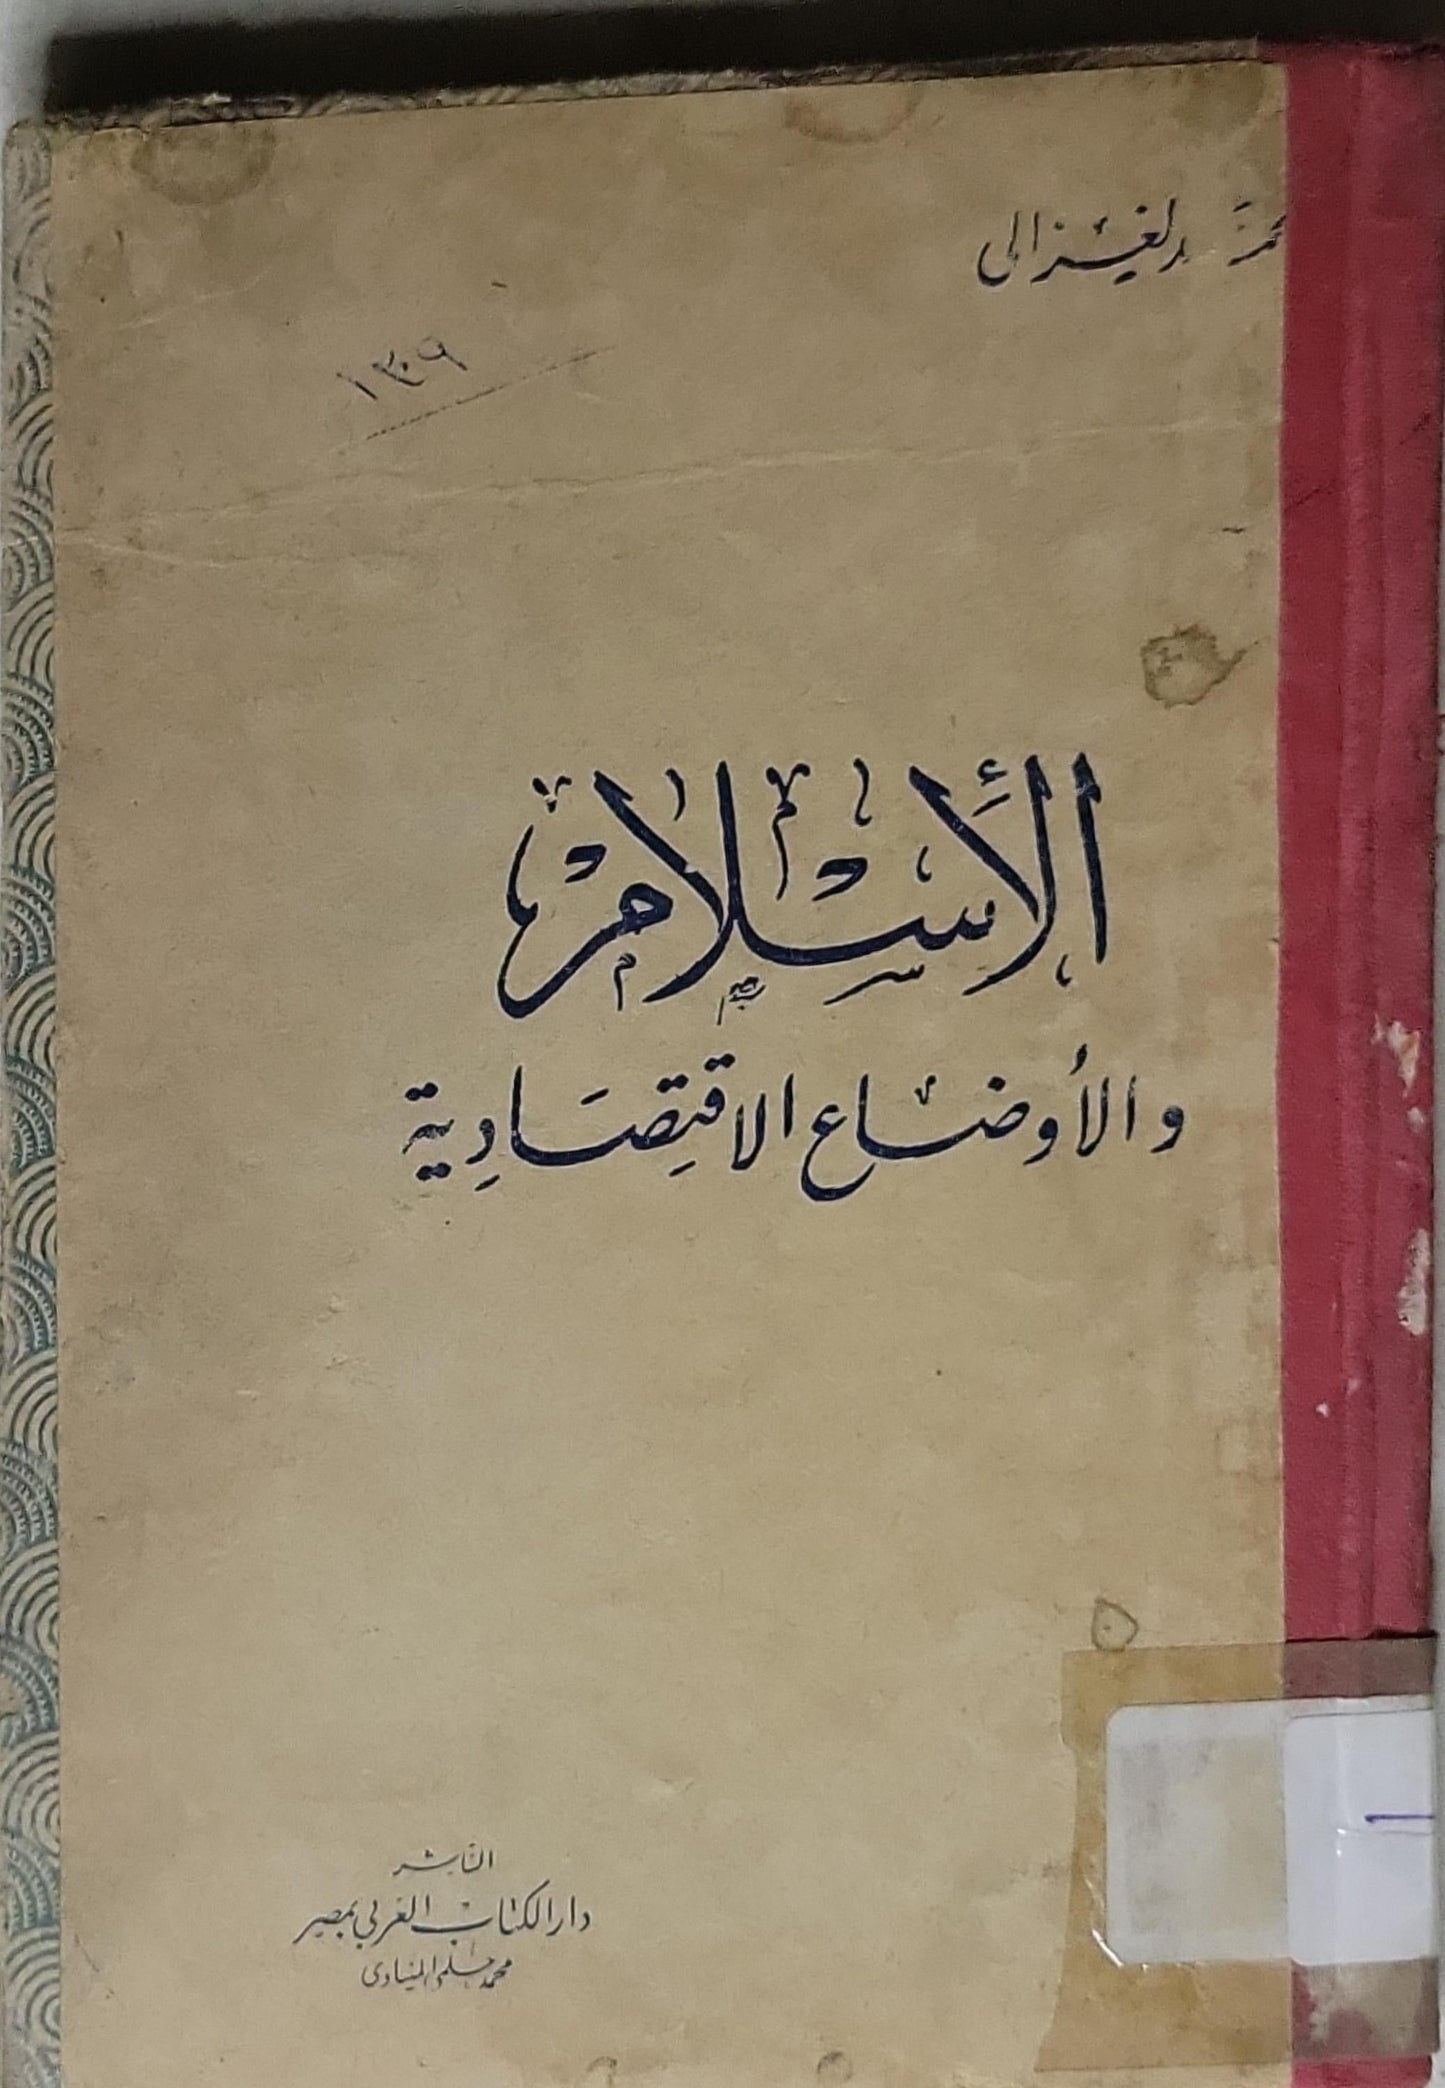 محمد الغزالى
١٣٠٩
الإسلام
والأوضاع الاقتصادية
الناشر
دار الكتاب العربي بمصر
محمد حلمى المنياوى